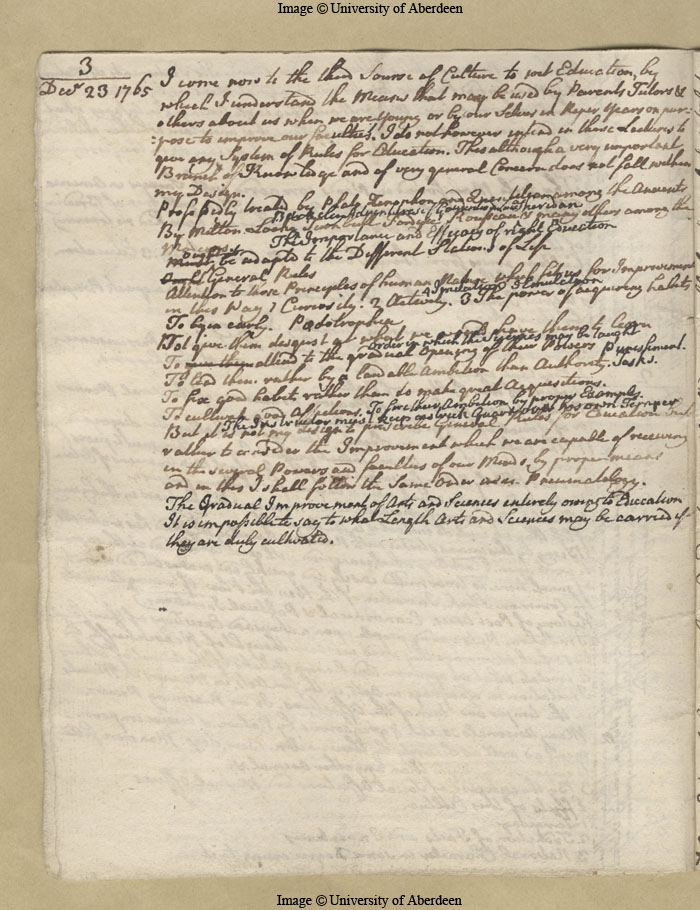 Image © University of Aberdeen
3
Decr 23 1765
I come now to the third Source of Culture to wit Education, by
which I understand the Means that may be used by Parents Tutors &
others about us when we are Young or by our Selves in Riper Years on pur
:pose to improve our faculties. I do not however intend in these Lectures to
give any System of Rules for Education. This although a very important
Branch of Knowledge and of very general Concern does not fall within
my Design.
Professedly treated by Plato Xenophon and Quintilian among the Ancients
By Milton Locke Rousseau & many others among the
Sheridan
Moderns.
The Importance and Efficacy of right Education
ought to
must be adapted to the Different Stations of Life
General Rules
Attention to those Principles of human Nature which fit us for Improvement
4 Imitation 5 Emulation
in this Way 1 Curiosity. 2 Activity. 3 The power of acquiring habits
To begin early. Pædotrophia
Not give them disgust at what we would have them to learn
Order in which the Sciences may be taught
To attend to the gradual Opening of their Powers
Punishment.
To lead them rather by laudable Ambition than Authority. Tasks.
To fix good habits rather than to make great Acquisitions.
To cultivate good Affections. To fire their Ambition by proper Examples.
The Instructor must keep a strict Guard over his own Temper
But it is not my design to prescribe General Rules for Education but
rather to consider the Improvement which we are capable of receiving
in the several Powers and faculties of our Minds by proper means
and in this I shall follow the Same Order as in Pneumatology.
The Gradual Improvement of Arts and Sciences entirely owing to Education
It is impossible to say to what Length Arts and Sciences may be carried if
they are duly cultivated.
Image © University of Aberdeen